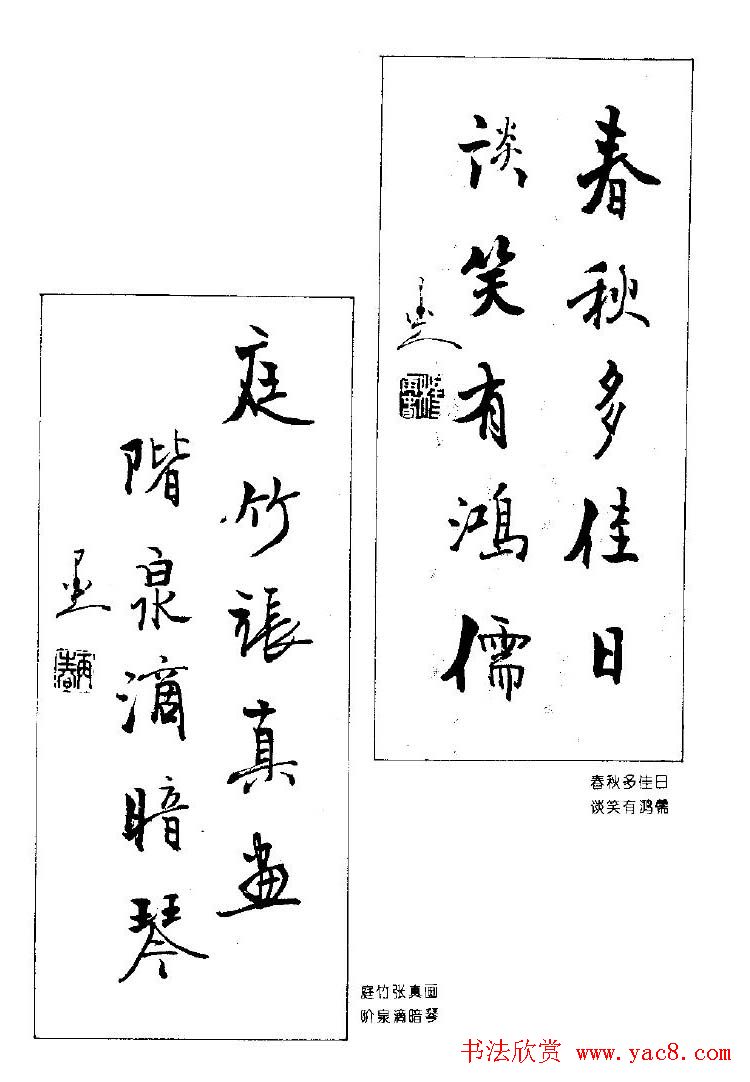 春秋多佳日
谈笑有鸿儒
春秋多佳日
谈笑有鸿儒
庭竹張真畫
階泉滴暗琴
庭竹张真画
阶泉滴暗琴
书法欣赏 www.yac8.com